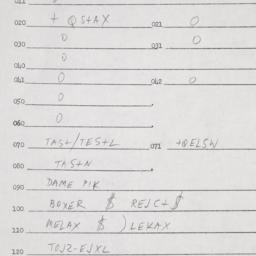 020 + QStAX 021 0
030 0 031 0
0
040
041 0 042 0
0
050
0
060
070 TASt/TEStL 071 +QELSW
080 TAStN
090 DAME PIK
100 BOXER $ REJCt $
110 MELAX $ ) LEKAX
120 TOJZ-EJXL